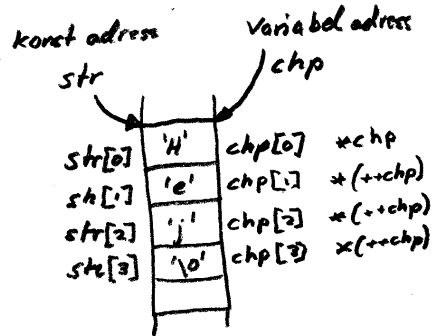 konst adress
variabel adress
str
chp
str[0] 'H' chp[0] *chp
str[1] 'e' chp[1] *(++chp)
str[2] 'j' chp[2] *(++chp)
str[3] '\0' chp[3] *(++chp)